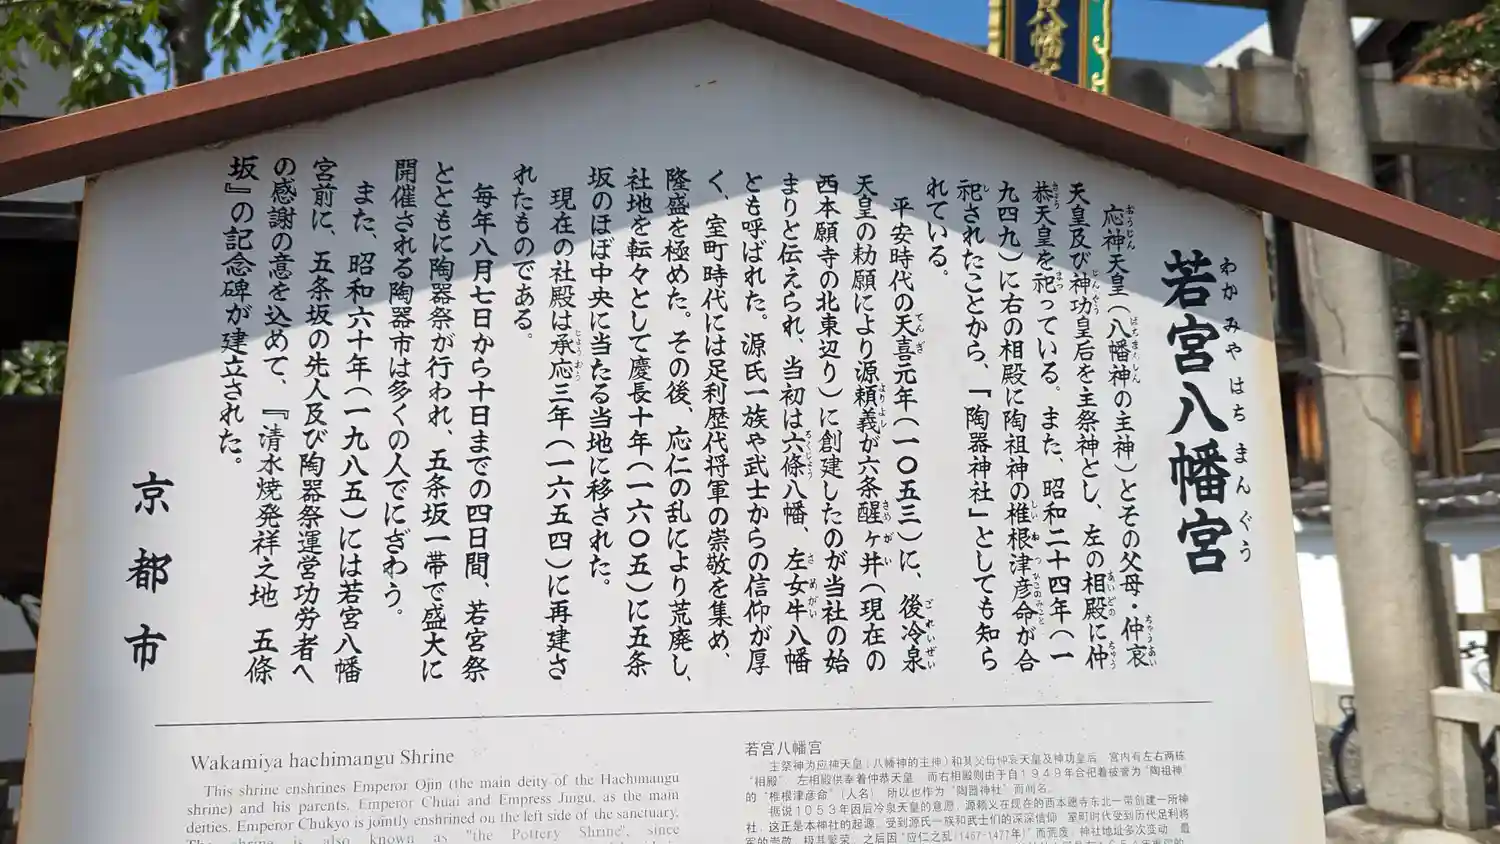 八幡
若宮八幡宮
わかみやはちまんぐう
応神天皇(八幡神の主神)とその父母・仲哀
天皇及び神功皇后を主祭神とし、左の相殿に仲
恭天皇を祀っている。また、昭和二十四年(一
九四九)に右の相殿に陶祖神の椎根津彦命が合
祀されたことから、「陶器神社」としても知ら
れている。
平安時代の天喜元年(一〇五三)に、後冷泉
天皇の勅願により源頼義が六条醒ヶ井(現在の
西本願寺の北東辺り)に創建したのが当社の始
まりと伝えられ、当初は六條八幡、左女牛八幡
とも呼ばれた。源氏一族や武士からの信仰が厚
く、室町時代には足利歴代将軍の崇敬を集め、
隆盛を極めた。その後、応仁の乱により荒廃し、
社地を転々として慶長十年(一六〇五)に五条
坂のほぼ中央に当たる当地に移された。
現在の社殿は承応三年(一六五四)に再建さ
れたものである。
毎年八月七日から十日までの四日間、若宮祭
とともに陶器祭が行われ、五条坂一帯で盛大に
開催される陶器市は多くの人でにぎわう。
また、昭和六十年(一九八五)には若宮八幡
宮前に、五条坂の先人及び陶器祭運営功労者へ
の感謝の意を込めて、『清水焼発祥之地 五條
坂』の記念碑が建立された。
京都市
Wakamiya hachimangu Shrine
This shrine enshrines Emperor Ojin (the main deity of the Hachimangu
shrine) and his parents, Emperor Chuai and Empress Jingu, as the main
deities. Emperor Chukyo is jointly enshrined on the left side of the sanctuary.
The shrine is also known as "the Pottery Shrine", since
若宮八幡宮
主祭神为应神天皇(八幡神的主神)和其父母仲哀天皇及神功皇后。宫内有左右两栋
"相殿"。左相殿供奉着仲恭天皇。而右相殿则由于自1949年合祀着被誉为"陶祖神"
的"椎根津彦命"(人名)。所以也作为"陶器神社"而闻名。
据说1053年因后冷泉天皇的意愿,源赖义在现在的西本愿寺东北一带创建一所神
社,这正是本神社的起源。受到源氏一族和武士们的深深信仰。室町时代受到历代足利将
军的崇敬,极其繁荣。之后因"应仁之乱(1467-1477年)"而荒废,神社地址多次变动,最